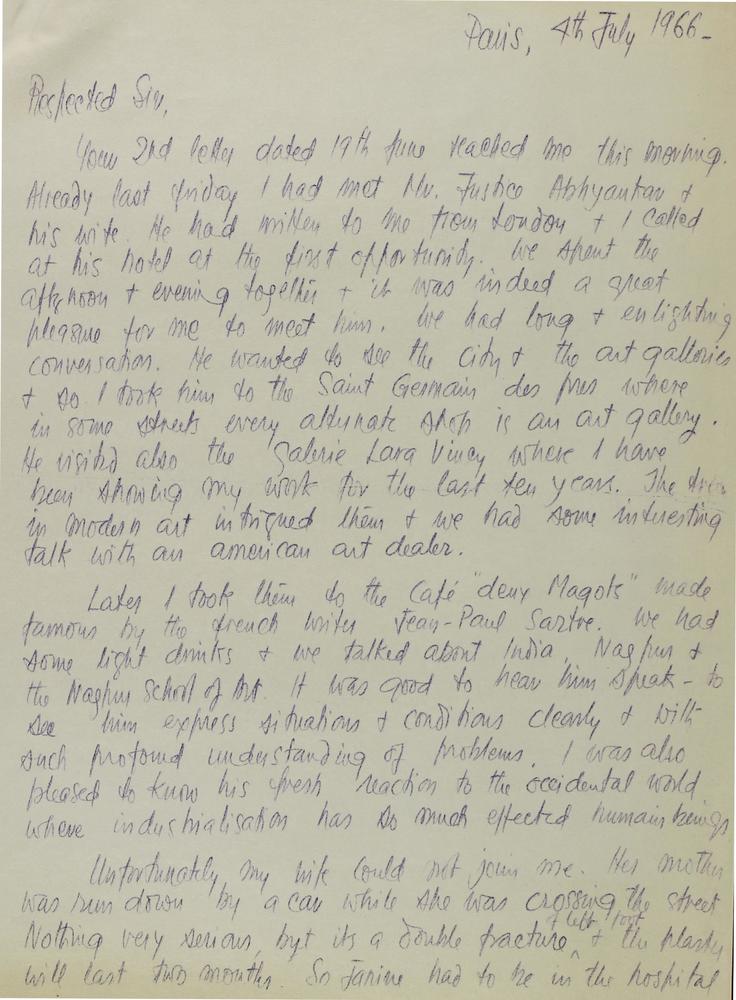 Paris, 4th July 1966-
Respected Sir,
Your 2nd letter dated 19th June reached me this morning.
Already last friday I had met Mr. Justice Abhyankar +
his wife. He had written to me from London + I called
at his hotel at the first opportunity. We spent the
afternoon + evening together + it was indeed a great
pleasure for me to meet him. We had long + enlighting
conversation. He wanted to see the city + the art galleries
+ so I took him to the Saint Germain des pres where
in some streets every alternate shop is an art gallery.
He visited also the Galerie Lara Vincy where I have
been showing my work for the last ten years. The
in modern art intrigued them + we had some interesting
talk with an american art dealer.
Later I took them to the Café "deux Magots" made
famous by the french writer Jean-Paul Sartre. We had
some light drinks + we talked about India, Nagpur +
the Nagpur School of Art. It was good to hear him speak - to
see him express situations + conditions clearly + with
such profound understanding of problems. I was also
pleased to know his fresh reaction to the occidental world
where industrialisation has so much effected human beings
Unfortunately my wife could not join me. Her mother
was run down by a car while she was crossing the street
of left foot
Nothing very serious, but its a double fracture ^ + the plaster
will last two months. So Janine had to be in the hospital